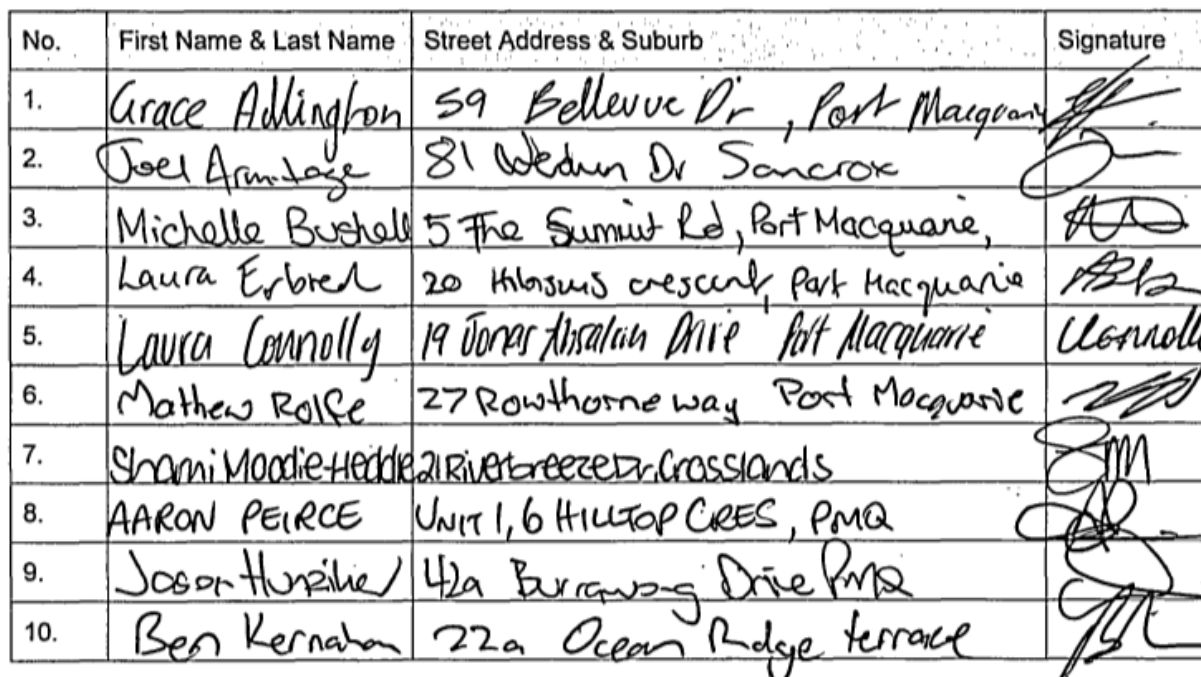 No. First Name & Last Name Street Address & Suburb Signature
1. Grace Adlington 59 Bellevue Dr, Port Macquarie
2. Joel Armitage 81 Dr Sancrox
3. Michelle Bushell 5 The Summit Rd, Port Macquarie,
4. Laura 20 Hibiscus crescent, Port Macquarie
5. Laura Connolly 19 Jonas Absalom Drive Port Macquarie
6. Mathew Rolfe 27 Rowthorne way Port Macquarie
7. Shami Moodie-Heddle 21 Riverbreeze Dr, Crosslands
8. AARON PEIRCE UNIT 1, 6 HILLTOP CRES, PMQ
9. 42a Burrawong Drive PMQ
10. Ben Kernahan 22a Ocean Ridge terrace